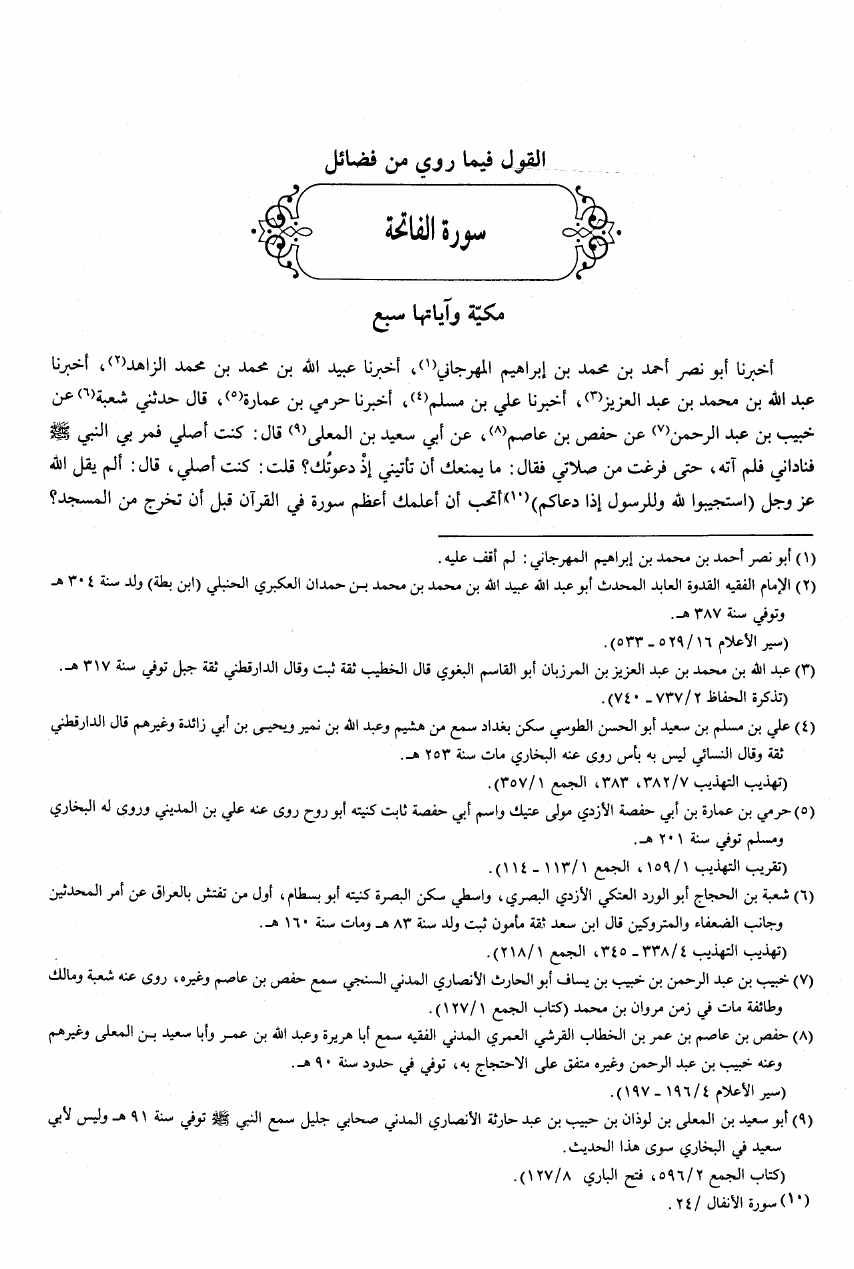 القول فيما روي من فضائل
سورة الفاتحة
مكيّة وآياتها سبع
أخبرنا أبو نصر أحمد بن محمد بن إبراهيم المهرجاني(١)، أخبرنا عبيد الله بن محمد بن محمد الزاهد(٢)، أخبرنا
عبد الله بن محمد بن عبد العزيز(٣)، أخبرنا علي بن مسلم(٤)، أخبرنا حرمي بن عمارة(٥)، قال حدثني شعبة(٦) عن
خبيب بن عبد الرحمن(٧) عن حفص بن عاصم(٨)، عن أبي سعيد بن المعلى(٩) قال: كنت أصلي فمر بي النبي ﷺ
فناداني فلم آته، حتى فرغت من صلاتي فقال: ما يمنعك أن تأتيني إذْ دعوتُك؟ قلت: كنت أصلي، قال: ألم يقل الله
عز وجل (استجيبوا لله وللرسول إذا دعاكم)(١٠) أتحب أن أعلمك أعظم سورة في القرآن قبل أن تخرج من المسجد؟
(١) أبو نصر أحمد بن محمد بن إبراهيم المهرجاني: لم أقف عليه.
(٢) الإمام الفقيه القدوة العابد المحدث أبو عبد الله عبيد الله بن محمد بن محمد بن حمدان العكبري الحنبلي (ابن بطة) ولد سنة ٣٠٤ هـ
وتوفي سنة ٣٨٧ هـ.
(سير الأعلام ١٦/ ٥٢٩ ـ ٥٣٣).
(٣) عبد الله بن محمد بن عبد العزيز بن المرزبان أبو القاسم البغوي قال الخطيب ثقة ثبت وقال الدارقطني ثقة جبل توفي سنة ٣١٧ هـ.
(تذكرة الحفاظ ٢/ ٧٣٧ ـ ٧٤٠).
(٤) علي بن مسلم بن سعيد أبو الحسن الطوسي سكن بغداد سمع من هشيم وعبد الله بن نمير ويحيى بن أبي زائدة وغيرهم قال الدارقطني
ثقة وقال النسائي ليس به بأس روى عنه البخاري مات سنة ٢٥٣ هـ.
(تهذيب التهذيب ٧/ ٣٨٢، ٣٨٣، الجمع ١/ ٣٥٧).
(٥) حرمي بن عمارة بن أبي حفصة الأزدي مولى عتيك واسم أبي حفصة ثابت كنيته أبو روح روى عنه علي بن المديني وروى له البخاري
ومسلم توفي سنة ٢٠١ هـ.
(تقريب التهذيب ١/ ١٥٩، الجمع ١/ ١١٣ ـ ١١٤).
(٦) شعبة بن الحجاج أبو الورد العتكي الأزدي البصري، واسطي سكن البصرة كنيته أبو بسطام، أول من تفتش بالعراق عن أمر المحدثين
وجانب الضعفاء والمتروكين قال ابن سعد ثقة مأمون ثبت ولد سنة ٨٣ هـ ومات سنة ١٦٠ هـ.
(تهذيب التهذيب ٤/ ٣٣٨ ـ ٣٤٥، الجمع ١/ ٢١٨).
(٧) خبيب بن عبد الرحمن بن خبيب بن يساف أبو الحارث الأنصاري المدني السنجي سمع حفص بن عاصم وغيره، روى عنه شعبة ومالك
وطائفة مات في زمن مروان بن محمد (كتاب الجمع ١/ ١٢٧).
(٨) حفص بن عاصم بن عمر بن الخطاب القرشي العمري المدني الفقيه سمع أبا هريرة وعبد الله بن عمر وأبا سعيد بن المعلى وغيرهم
وعنه خبيب بن عبد الرحمن وغيره متفق على الاحتجاج به، توفي في حدود سنة ٩٠ هـ.
(سير الأعلام ٤/ ١٩٦ ـ ١٩٧).
(٩) أبو سعيد بن المعلى بن لوذان بن حبيب بن عبد حارثة الأنصاري المدني صحابي جليل سمع النبي ﷺ توفي سنة ٩١ هـ وليس لأبي
سعيد في البخاري سوى هذا الحديث.
(كتاب الجمع ٢/ ٥٩٦، فتح الباري ٨/ ١٢٧).
(١٠) سورة الأنفال /٢٤.